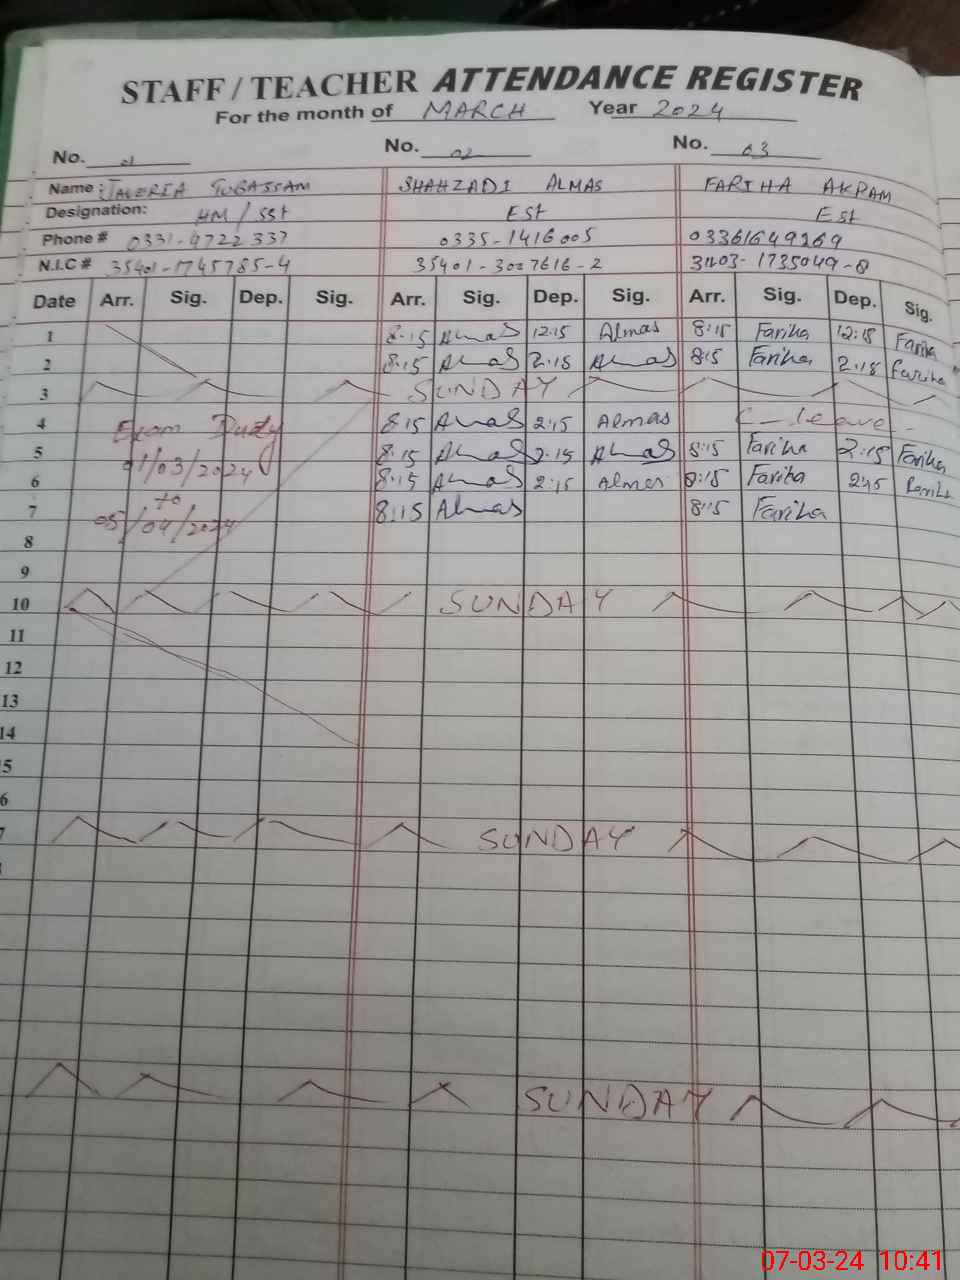 STAFF / TEACHER ATTENDANCE REGISTER
For the month of MARCH Year 2024
No. 01 No. 02 No. 03
Name : JAVERIA SHAHZADI ALMAS FARIHA AKRAM
Designation: HM / SST EST EST
Phone # 0331-4722337 0335-1416005 03361649269
N.I.C # 35401-1745785-4 35401-3027616-2 31203-1735049-8
Date Arr. Sig. Dep. Sig. Arr. Sig. Dep. Sig. Arr. Sig. Dep. Sig.
1 8:15 Almas 12:15 Almas 8:15 Fariha 12:15 Fariha
2 8:15 Almas 2:15 Almas 8:15 Fariha 2:15 Fariha
3 SUNDAY
4 Exam Duty 8:15 Almas 2:15 Almas C-leave
5 01/03/2024 8:15 Almas 2:15 Almas 8:15 Fariha 2:15 Fariha
6 to 8:15 Almas 2:15 Almas 8:15 Fariha 2:15 Fariha
7 05/04/2024 8:15 Almas 8:15 Fariha
8
9
10 SUNDAY
11
12
13
14
5
6
7 SUNDAY
SUNDAY
07-03-24 10:41